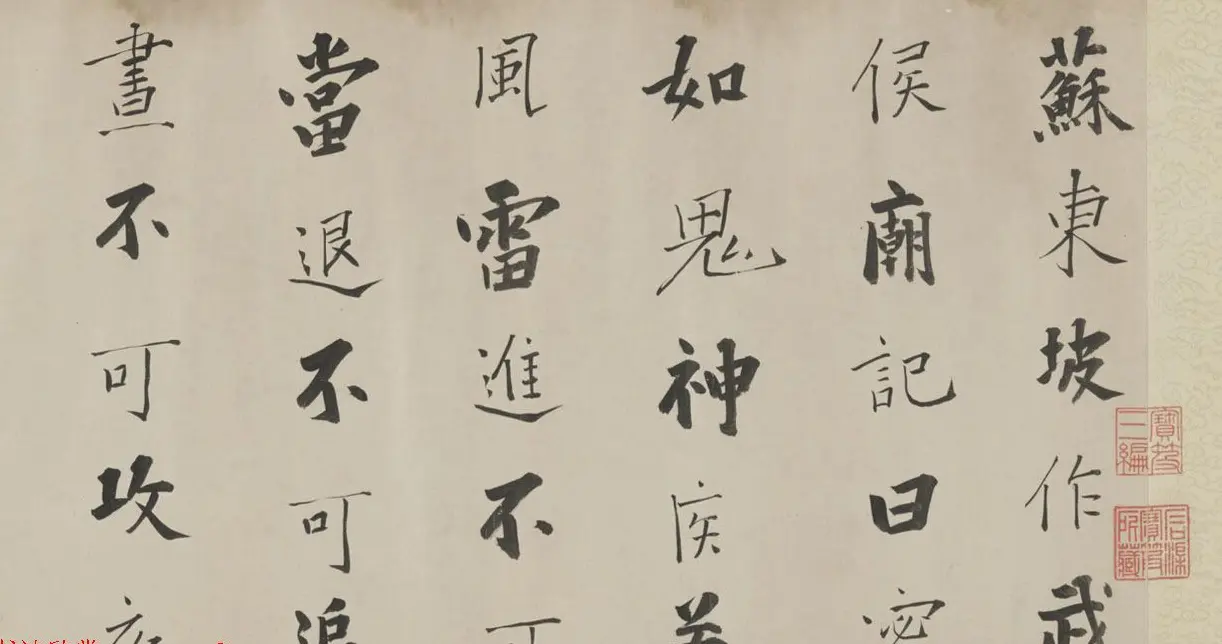 蘇東坡作武
侯廟記曰密
如鬼神疾
風雷進不
當退不可追
晝不可攻
寶笈三編
石渠寶笈所藏